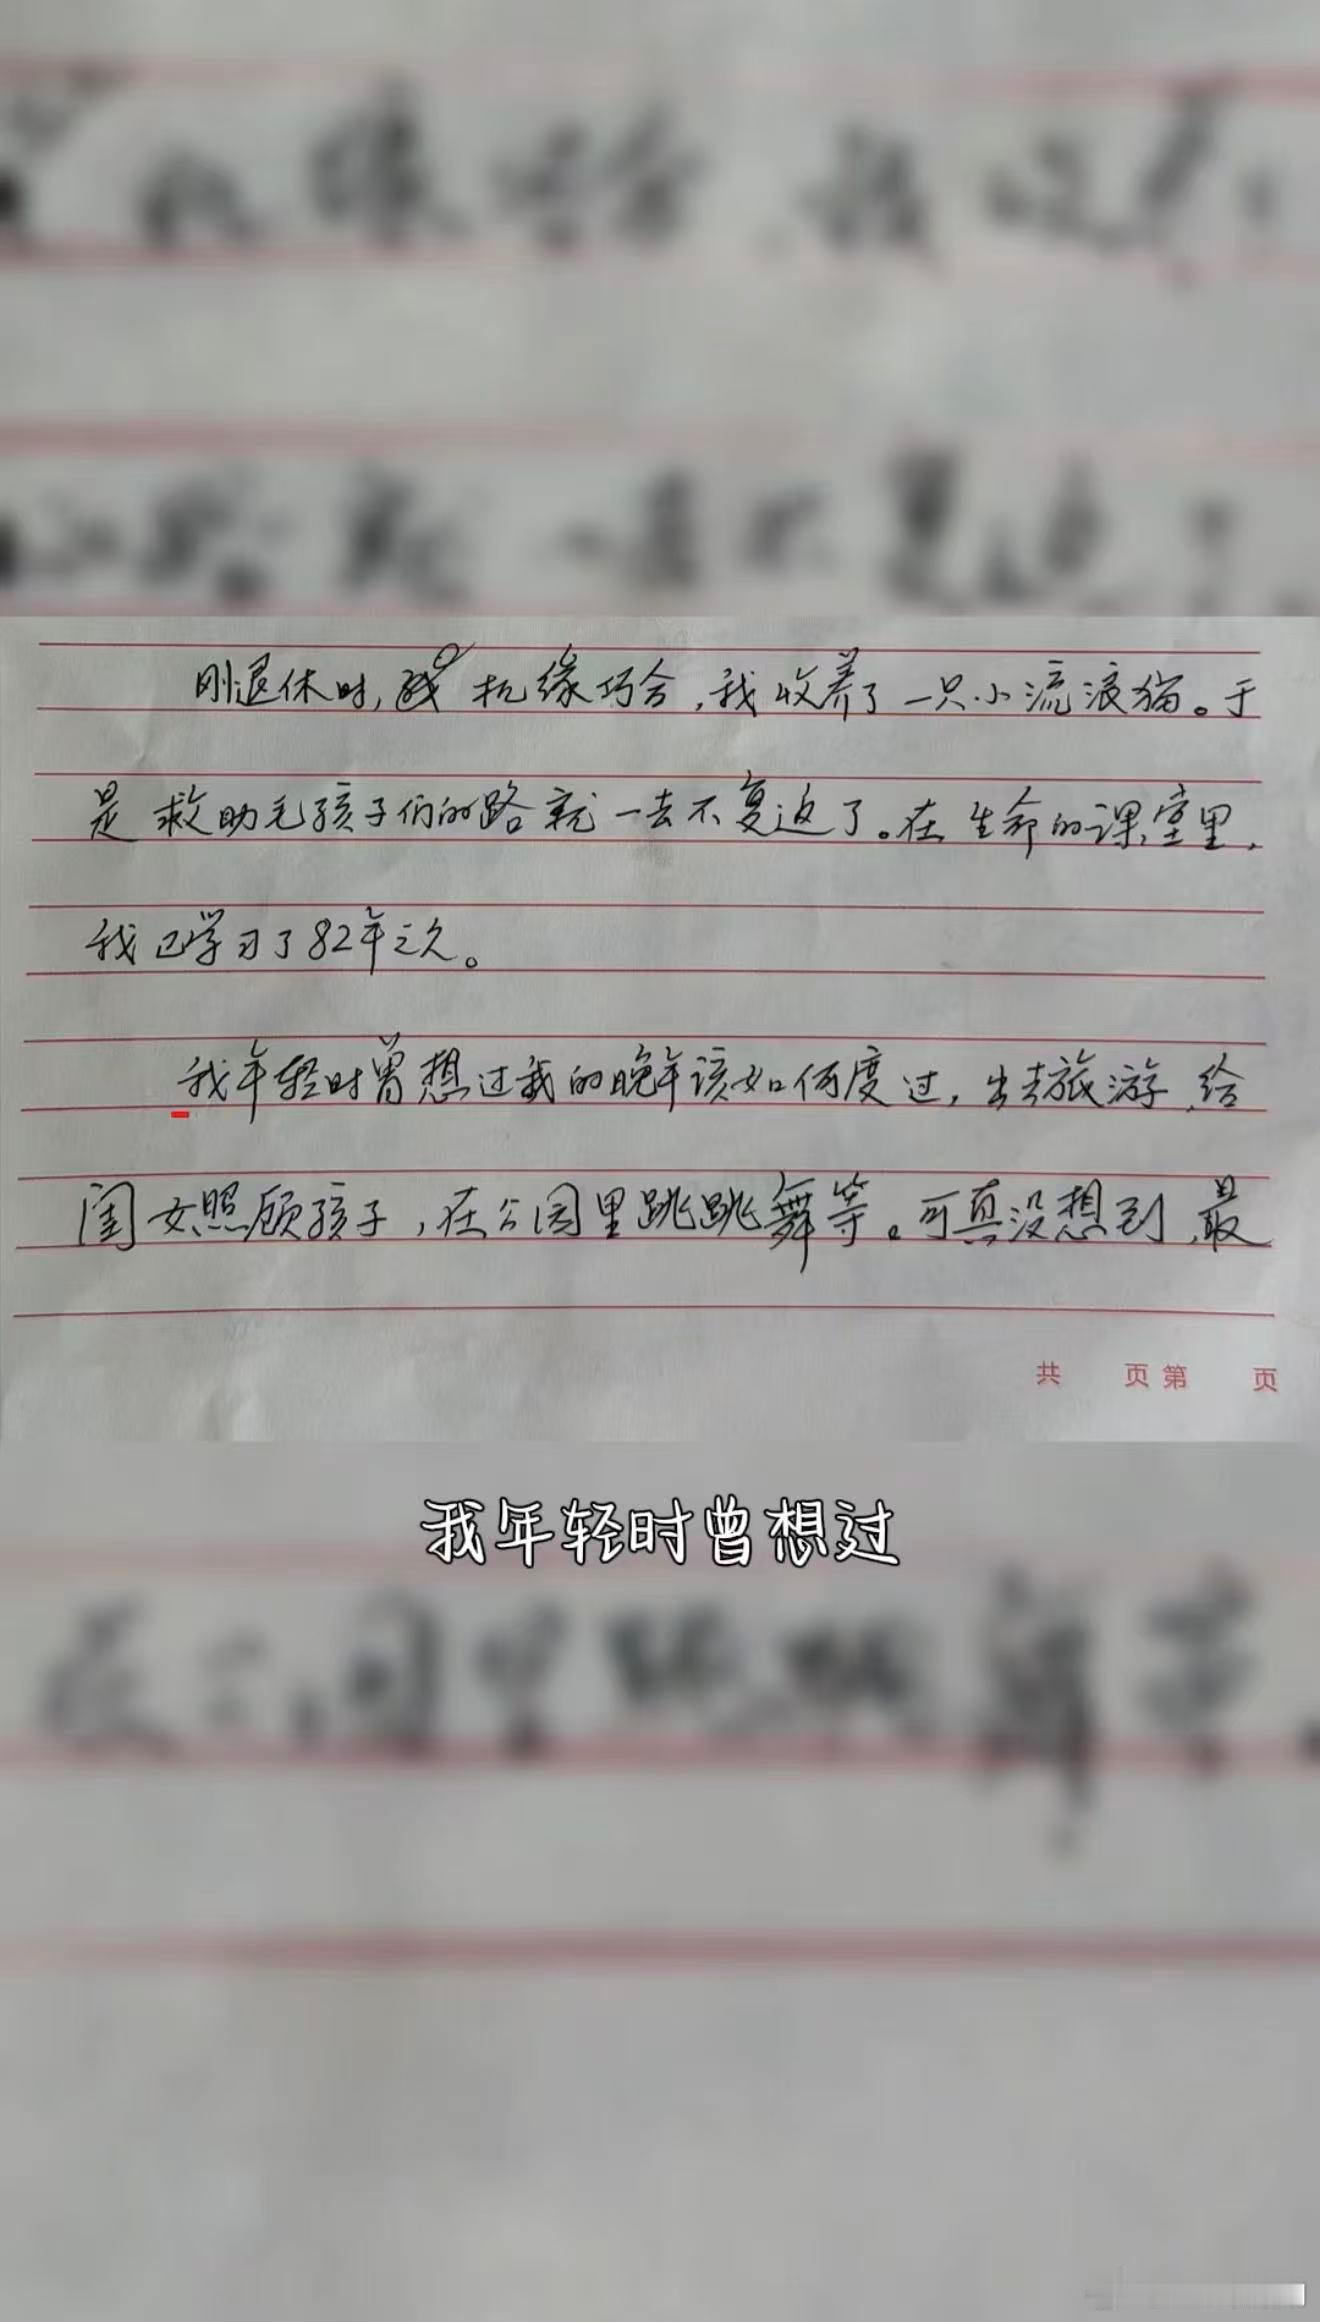 刚退休时，机缘巧合，我收养了一只小流浪猫。于
是救助毛孩子们的路就一去不复返了。在生命的课堂里，
我已学习了82年之久。
我年轻时曾想过我的晚年该如何度过，出去旅游，给
闺女照顾孩子，在公园里跳跳舞等。可真没想到，最
共 页 第 页
我年轻时曾想过